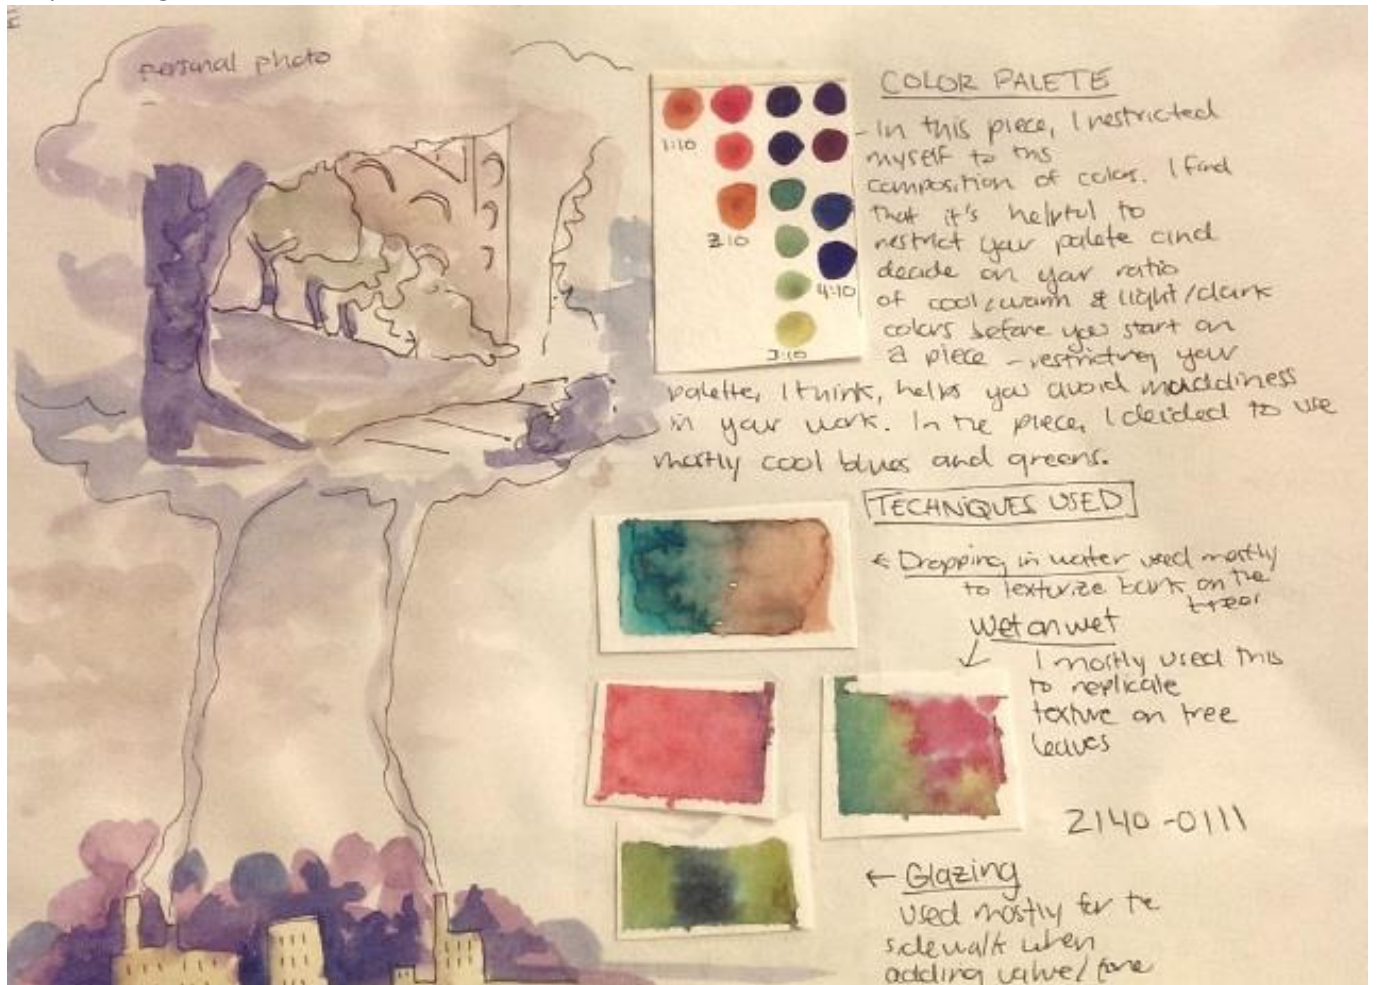 personal photo
COLOR PALETE
1:10
2:10
4:10
3:10
- In this piece, I restricted
myself to this
composition of color. I find
that it's helpful to
restrict your palete and
decide on your ratio
of cool/warm & light/dark
colors before you start on
a piece - restricting your
palette, I think, helps you avoid muddiness
in your work. In the piece, I decided to use
mostly cool blues and greens.
TECHNIQUES USED
← Dropping in water used mostly
to texturize bark on the
trees
Wet on wet
I mostly used this
to replicate
texture on tree
leaves
2140-0111
← Glazing
used mostly for the
sidewalk when
adding value/tone